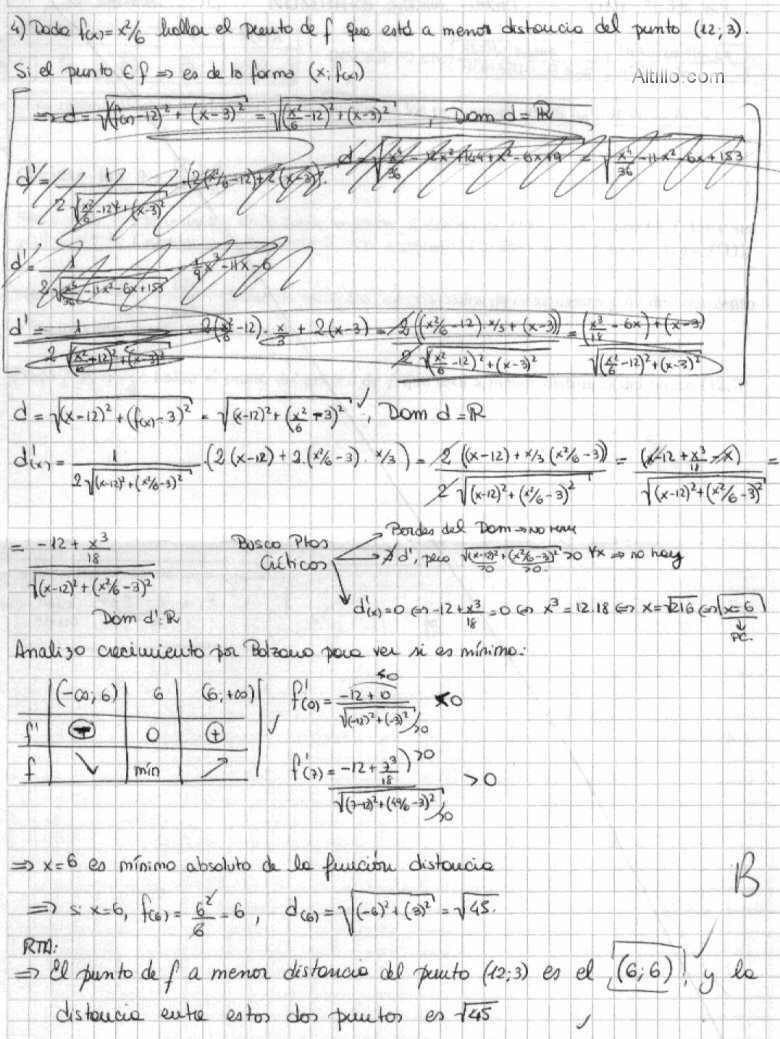 4) Dada f(x)=x²/6 hallar el punto de f que está a menor distancia del punto (12;3).
Altillo.com
Si el punto ∈ f ⇒ es de la forma (x; f(x))
⇒ d = √((f(x)-12)² + (x-3)²) = √((x²/6 -12)² + (x-3)²) , Dom d = ℝ
d = √(x⁴/36 - 12x² + 144 + x² - 6x + 9) = √(x⁴/36 - 11x² - 6x + 153)
d' = 1/(2√((x²/6 -12)² + (x-3)²)) · (2(x²/6 -12) + 2(x-3)).
d' = 1/(2√(x⁴/36 - 11x² - 6x + 153)) · 1/9 x³ - 11x - 6
d' = 1/(2√((x²/6 +12)² + (x-3)²)) · 2(x²/6 -12) · x/3 + 2(x-3) = 2((x²/6 -12)·x/3 + (x-3))/(2√((x²/6 -12)² + (x-3)²)) = ((x³/18 - 6x) + (x-3))/√((x²/6 -12)² + (x-3)²)
d = √((x-12)² + (f(x)-3)²) = √((x-12)² + (x²/6 -3)²) , Dom d = ℝ
d'(x) = 1/(2√((x-12)² + (x²/6 -3)²)) · (2(x-12) + 2·(x²/6 -3) · x/3) = 2((x-12) + x/3 (x²/6 -3))/(2√((x-12)² + (x²/6 -3)²)) = (x-12 + x³/18 - x)/√((x-12)² + (x²/6 -3)²) =
= (-12 + x³/18)/√((x-12)² + (x²/6 -3)²)
Dom d': ℝ
Busco Ptos Críticos
Bordes del Dom → no hay
∄ d', pero √((x-12)² + (x²/6 -3)²) >0 ∀x ⇒ no hay
>0 >0
d'(x) = 0 ⇔ -12 + x³/18 = 0 ⇔ x³ = 12.18 ⇔ x = √216 ⇔ x=6
PC.
Analizo crecimiento por Bolzano para ver si es mínimo:
(-∞; 6) 6 (6; +∞)
f' - 0 +
f ↘ mín ↗
f'(0) = (-12 + 0)/√((-12)² + (-3)²) <0
<0
>0
f'(7) = (-12 + 7³/18)/√((7-12)² + (49/6 -3)²) >0
>0
>0
⇒ x=6 es mínimo absoluto de la función distancia
⇒ si x=6, f(6) = 6²/6 = 6 , d(6) = √((-6)² + (3)²) = √45.
B
RTA:
⇒ El punto de f a menor distancia del punto (12;3) es el (6;6) y la
distancia entre estos dos puntos es √45